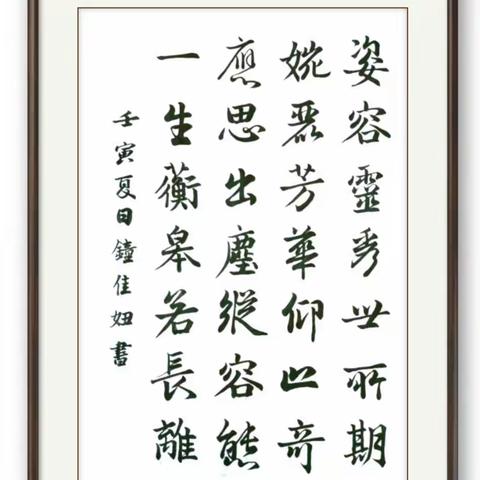 姿容靈秀世所期
婉麗芳華仰止奇
應思出塵縱容能
一生蘅皋若長離
壬寅夏日鐘佳妞書